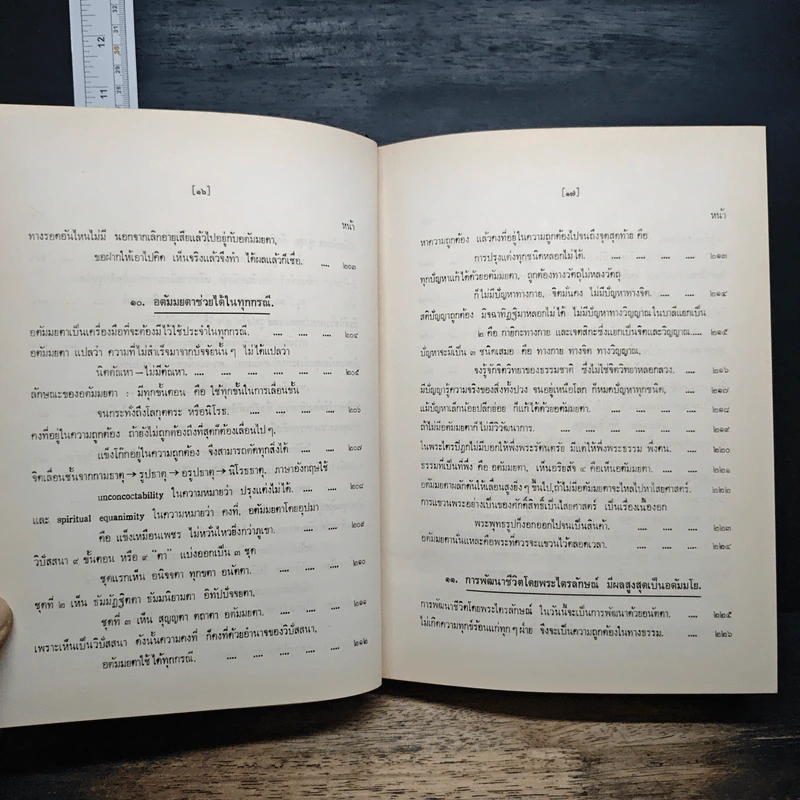 11
12
30
[๑๖]
หน้า
ทางรอดอันไหนไม่มี นอกจากเลิกอายุเสียแล้วไปอยู่กับอตัมมยตา,
ขอฝากให้เอาไปคิด เห็นจริงแล้วจึงทำ ได้ผลแล้วก็เชื่อ. .... ๒๐๓
๑๐. อตัมมยตาช่วยได้ในทุกกรณี.
อตัมมยตาเป็นเครื่องมือที่จะต้องมีไว้ใช้ประจำในทุกกรณี. .... .... .... ๒๐๔
อตัมมยตา แปลว่า ความที่ไม่สำเร็จมาจากปัจจัยนั้น ๆ ไม่ได้แปลว่า
นิตตัณหา – ไม่มีตัณหา. .... .... .... .... ๒๐๕
ลักษณะของอตัมมยตา : มีทุกขั้นตอน คือ ใช้ทุกขั้นในการเลื่อนชั้น
จนกระทั่งถึงโลกุตตระ หรือนิโรธ. .... .... .... ๒๐๖
คงที่อยู่ในความถูกต้อง ถ้ายังไม่ถูกต้องถึงที่สุดก็ต้องเลื่อนไป ๆ.
แข็งโก๊กอยู่ในความถูกต้อง จึงสามารถตัดทุกสิ่งได้ .... ๒๐๗
จิตเลื่อนชั้นจากกามธาตุ → รูปธาตุ → อรูปธาตุ → นิโรธธาตุ. ภาษาอังกฤษใช้
unconcoctability ในความหมายว่า ปรุงแต่งไม่ได้. .... .... ๒๐๘
และ spiritual equanimity ในความหมายว่า คงที่. อตัมมยตาโดยอุปมา
คือ แข็งเหมือนเพชร ไม่หวั่นไหวยิ่งกว่าภูเขา. .... .... ๒๐๙
วิปัสสนา ๙ ขั้นตอน หรือ ๙ "ตา" แบ่งออกเป็น ๓ ชุด
ชุดแรกเห็น อนิจจตา ทุกขตา อนัตตา. .... .... .... ๒๑๐
ชุดที่ ๒ เห็น ธัมมัฏฐิตตา ธัมมนิยามตา อิทัปปัจจยตา.
ชุดที่ ๓ เห็น สุญญตา ตถาตา อตัมมยตา. .... .... .... ๒๑๑
เพราะเห็นเป็นวิปัสสนา ดังนั้นความคงที่ ก็คงที่ด้วยอำนาจของวิปัสสนา,
อตัมมยตาใช้ได้ทุกกรณี. .... .... .... .... ๒๑๒
[๑๗]
หน้า
หาความถูกต้อง แล้วคงที่อยู่ในความถูกต้องไปจนถึงจุดสุดท้าย คือ
การปรุงแต่งทุกชนิดหลอกไม่ได้. .... .... .... ๒๑๓
ทุกปัญหาแก้ได้ด้วยอตัมมยตา, ถูกต้องทางวัตถุไม่หลงวัตถุ
ก็ไม่มีปัญหาทางกาย, จิตมั่นคง ไม่มีปัญหาทางจิต. .... .... ๒๑๔
สติปัญญาถูกต้อง มิจฉาทิฏฐิมาหลอกไม่ได้ ไม่มีปัญหาทางวิญญาณ ในบาลีแยกเป็น
๒ คือ กายิกะทางกาย และเจตสิกะซึ่งแยกเป็นจิตและวิญญาณ..... ๒๑๕
ปัญหาจะมีเป็น ๓ ชนิดเสมอ คือ ทางกาย ทางจิต ทางวิญญาณ,
จงรู้จักจิตวิทยาของธรรมชาติ ซึ่งไม่ใช่จิตวิทยาหลอกลวง. .... ๒๑๖
มีปัญญารู้ความจริงของสิ่งทั้งปวง จนอยู่เหนือโลก ก็หมดปัญหาทุกชนิด, .... ๒๑๗
แม้ปัญหาเล็กน้อยปลีกย่อย ก็แก้ได้ด้วยอตัมมยตา. .... .... .... ๒๑๘
ถ้าไม่มีอตัมมยตาก็ไม่มีวิวัฒนาการ. .... .... .... .... ๒๑๙
ในพระไตรปิฎกไม่มีบอกให้พึ่งพระรัตนตรัย มีแต่ให้พึ่งพระธรรม พึ่งตน. .... ๒๒๐
ธรรมที่เป็นที่พึ่ง คือ อตัมมยตา, เห็นอริยสัจ ๔ คือเห็นอตัมมยตา. .... .... ๒๒๑
อตัมมยตาผลักดันให้เลื่อนสูงยิ่ง ๆ ขึ้นไป, ถ้าไม่มีอตัมมยตาจะไหลไปหาไสยศาสตร์. ๒๒๒
การแขวนพระอย่างเป็นของศักดิ์สิทธิ์เป็นไสยศาสตร์ เป็นเรื่องเนื้องอก
พระพุทธรูปก็งอกออกไปจนเป็นสินค้า. .... .... .... ๒๒๓
อตัมมยตานั่นแหละคือพระที่ควรจะแขวนไว้ตลอดเวลา. .... .... .... ๒๒๔
๑๑. การพัฒนาชีวิตโดยพระไตรลักษณ์ มีผลสูงสุดเป็นอตัมมโย.
การพัฒนาชีวิตโดยพระไตรลักษณ์ ในวันนี้จะเป็นการพัฒนาด้วยอนัตตา. .... ๒๒๕
ไม่เกิดความทุกข์ร้อนแก่ทุก ๆ ฝ่าย จึงจะเป็นความถูกต้องในทางธรรม. .... ๒๒๖